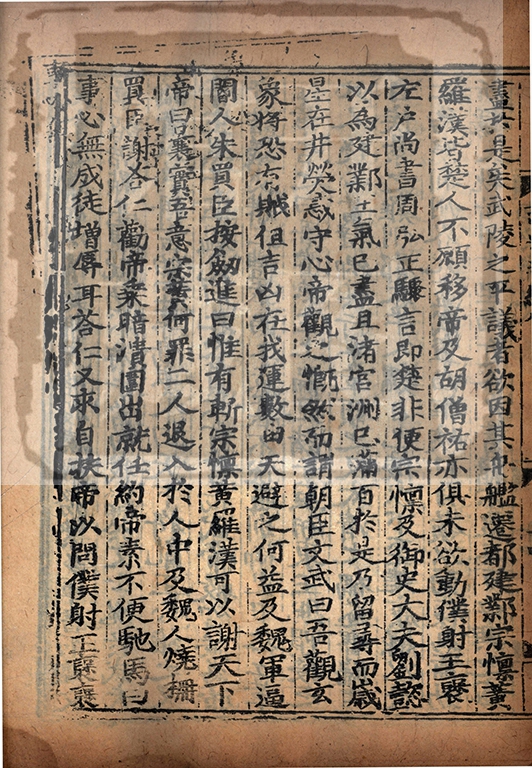 盡於是矣武陵之平議者欲因其舟艦遷都建鄴宗懍黃
羅漢皆楚人不願移帝及胡僧祐亦俱未欲動僕射王裒
左戶尚書周弘正驟言即楚非便宗懍及御史大夫劉懿
以為建鄴王氣已盡且渚宮洲已滿百於是乃留尋而歲
星在井熒惑守心帝觀之慨然而謂朝臣文武曰吾觀玄
象將恐有賊但吉凶在我運數由天避之何益及魏軍逼
閽人朱買臣按劒進曰惟有斬宗懍黃羅漢可以謝天下
帝曰曩實吾意宗黃何罪二人退入於人中及魏人燒柵
買臣謝荅仁勸帝乘暗潰圍出就任約帝素不便馳馬曰
事必無成徒增辱耳荅仁又求自扶帝以問僕射王襃襃